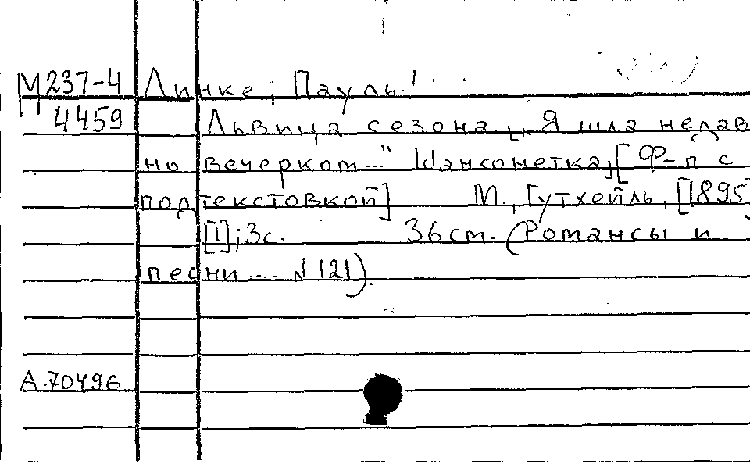 М237-4 Линке, Пауль!
4459 Львица сезона. „Я шла недав
но вечерком..." Шансонетка, [Ф-п с
подтекстовкой] М., Гутхейль, [1895]
[1], 3с. 36см. (Романсы и
песни... №121).
А.70496